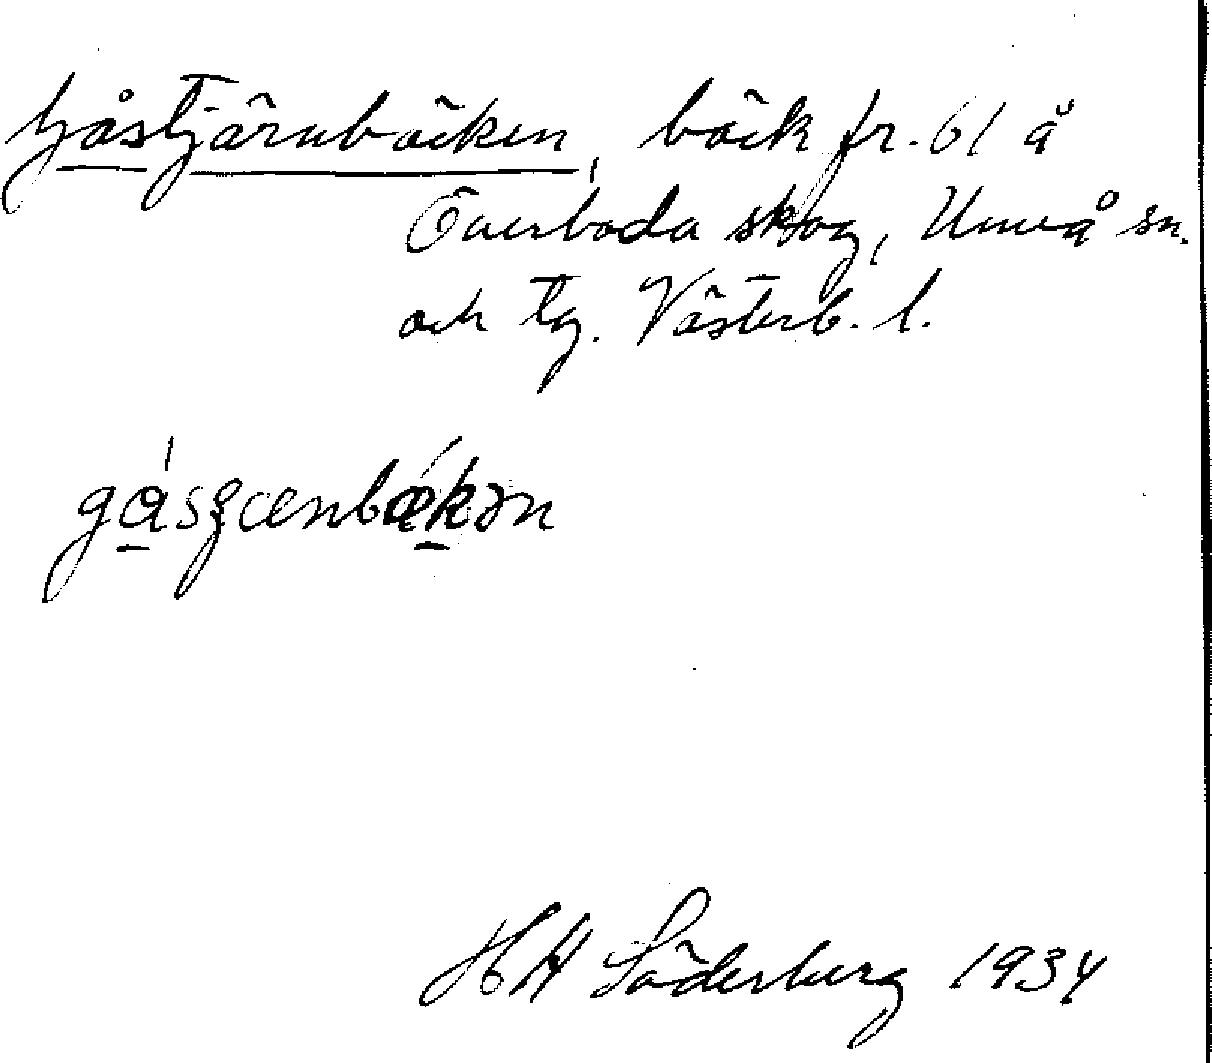 Gåstjärnbäcken, bäck fr. 61 å
Överboda skog, Umeå sn.
och tg. Västerb. l.
gásʒænbǽkən
HH Söderberg 1934